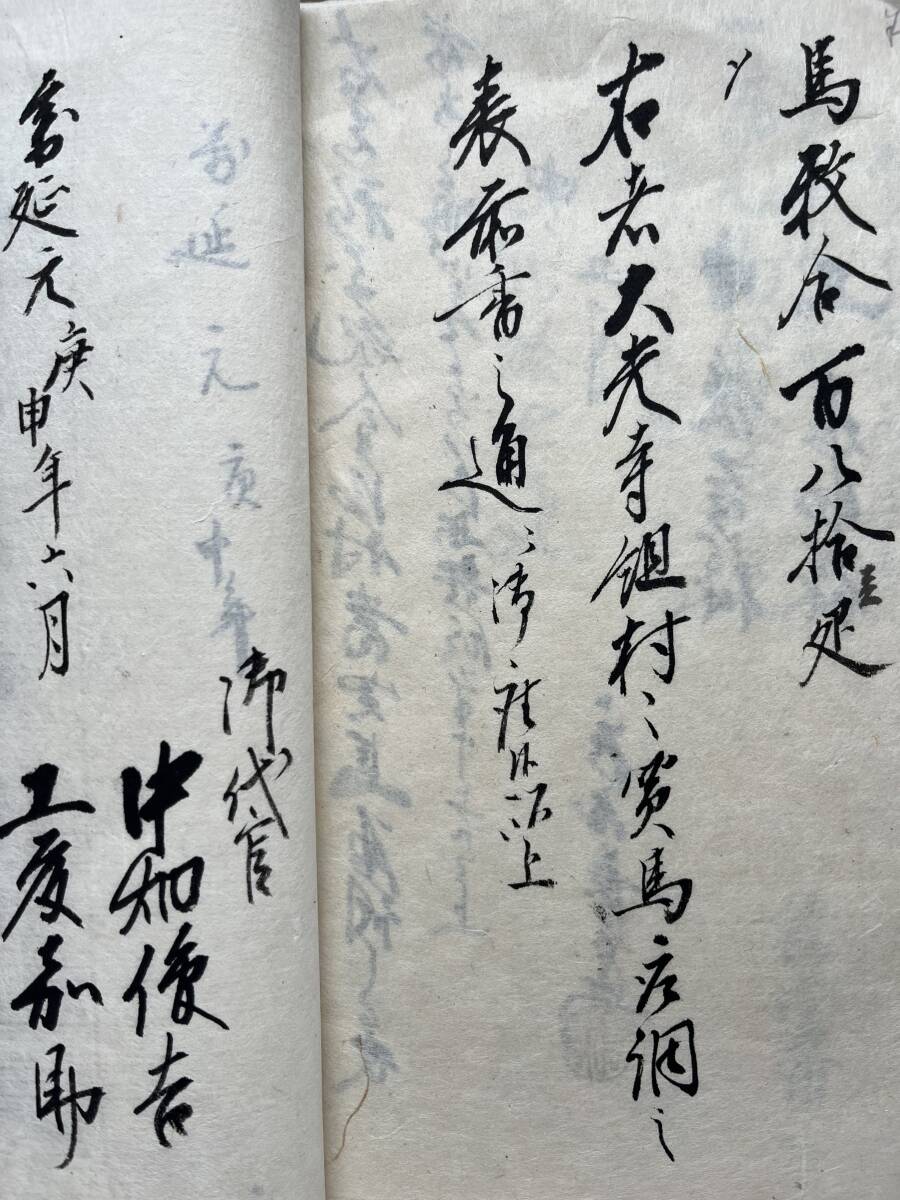 馬数合百八拾壱疋
〆
右者大光寺組村々買馬調之
表前書之通ニ御座候以上
萬延元庚申年六月
御代官
中俊吉
工藤嘉助